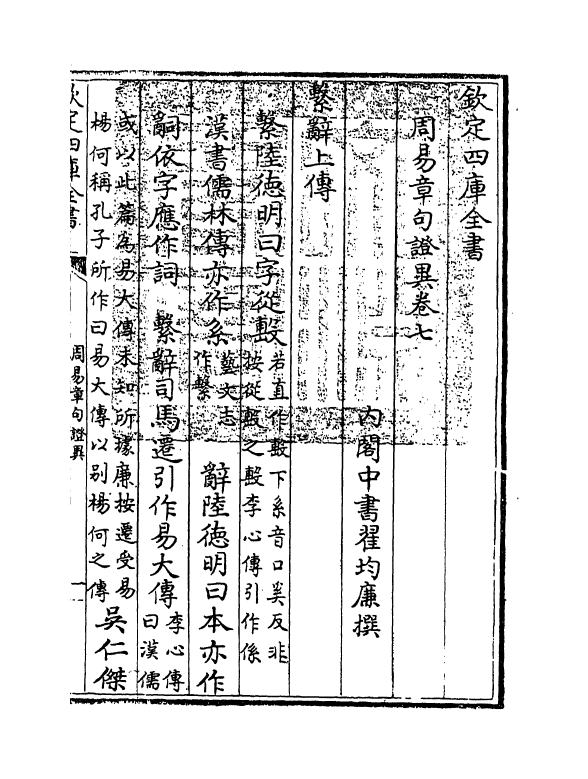 欽定四庫全書
周易章句證異卷七
內閣中書翟均廉撰
繫辭上傳
繫陸徳明曰字從毄
若直作毄下系音口奚反非
按從毄之毄李心傳引作係
漢書儒林傳亦作系
藝文志
作繫
辭陸徳明曰本亦作
嗣依字應作詞 繫辭司馬遷引作易大傳
李心傳
曰漢儒
或以此篇為易大傳未知所據廉按遷受易
楊何稱孔子所作曰易大傳以别楊何之傳
吳仁傑
欽定四庫全書
周易章句證異
一